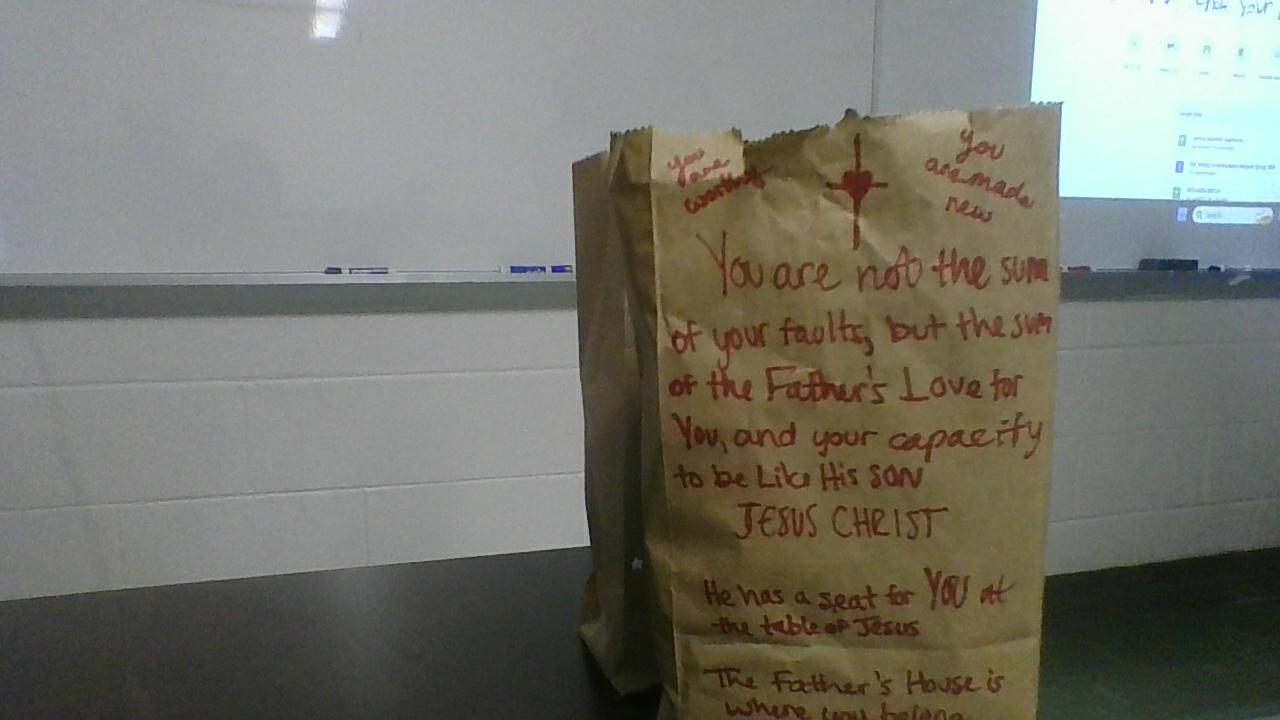 You
are
worthy
You
are made
new
You are not the sum
of your faults, but the sum
of the Father's Love for
You, and your capacity
to be Like His SON
JESUS CHRIST
He has a seat for YOU at
the table of Jesus
The Father's House is
where you belong